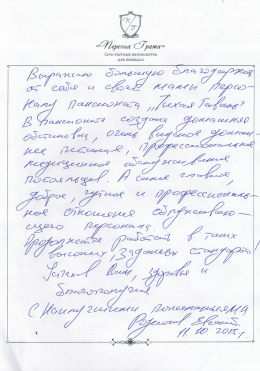 «Первая Грата»
Сеть частных пансионатов
для пожилых
Выражаю большую благодарность
от себя и своей мамы персо-
налу пансионата „Тихая Гавань“
В пансионате создана домашняя
обстановка, очень вкусное домаш-
нее питание, профессиональное
медицинское обслуживание
постояльцев. А самое главное,
доброе, чуткое и профессиональ-
ное отношение обслуживаю-
щего персонала.
Продолжайте работать в таких
высоких, заданных стандартах!
Успехов Вам, здоровья и
благополучия
С наилучшими пожеланиями
11.10.2015г.